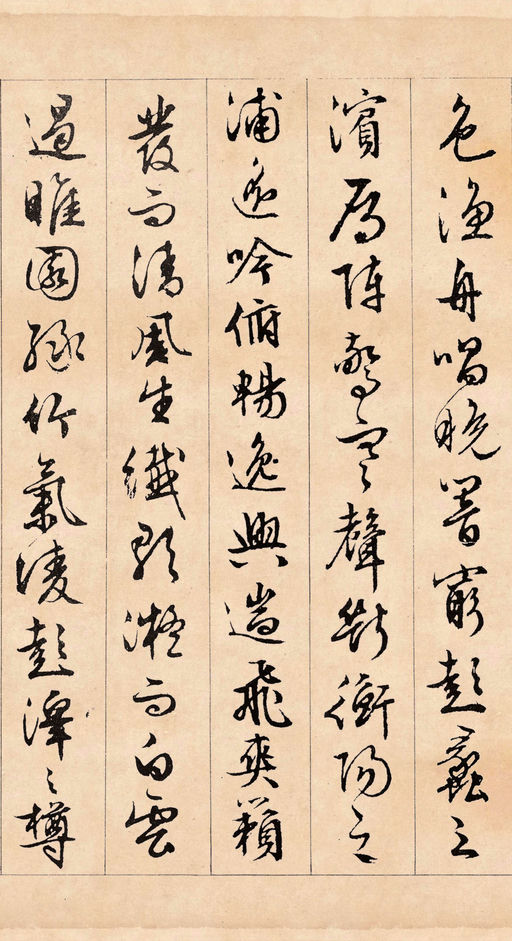 色漁舟唱晚響窮彭蠡之
濱雁陣驚寒聲斷衡陽之
浦遙吟俯暢逸興遄飛爽籟
發而清風生纖歌凝而白雲
遏睢園綠竹氣凌彭澤之樽